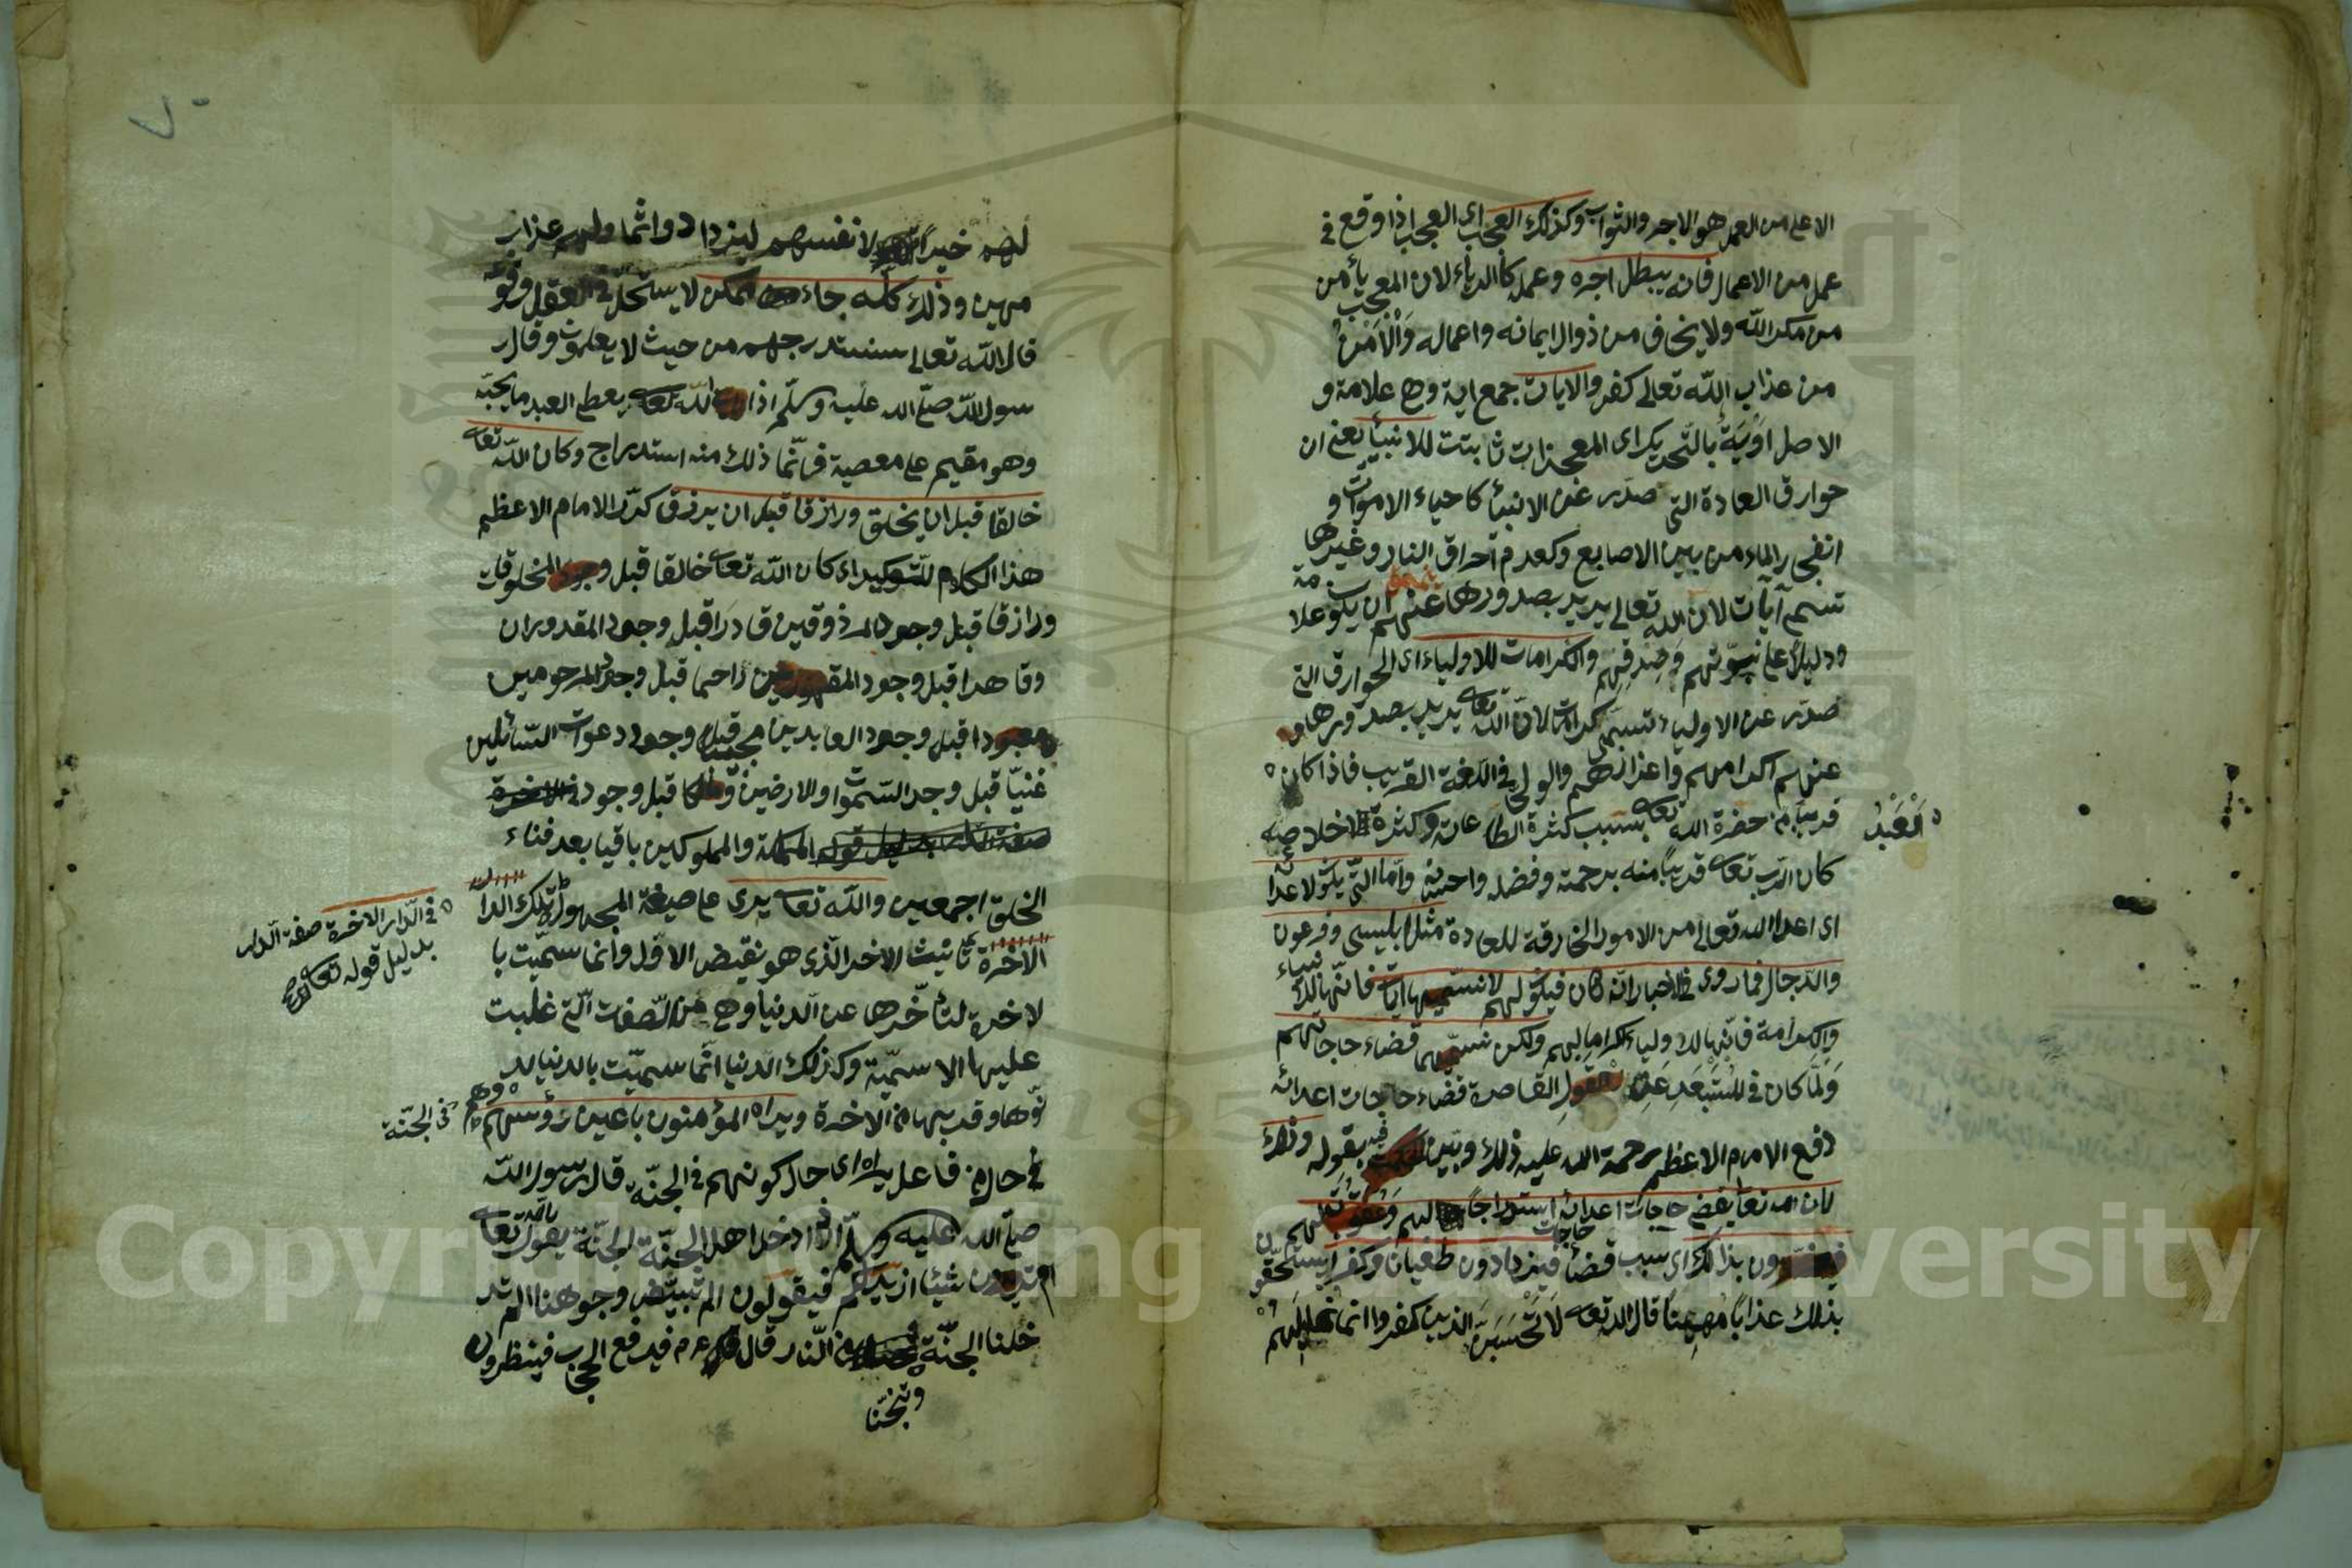 الاعلى من العمل هو الاجر والثواب وكذلك العجب اى العجب اذا وقع فى
عمل من الاعمال فانه يبطل اجره وعمله كالرياء لان المعجب يأمن
من مكر الله ولا يخاف من زوال ايمانه واعماله وَالْاَمْنُ
من عذاب الله تعالى كفر والايات جمع اية وهى علامة و
الاصل اَوَيَةٌ بالتحريك اى المعجزات ثابتت للانبيأ يعنى ان
خوارق العادة التى صدر عن الانبيأ كاحياء الاموات و
انفجار الماء من بين الاصابع وكعدم احراق النار وغيرها
تسمى آيات لان الله تعالى يريد بصدورها عنهم ان يكون علامة
ودليلا على نبوّتهم وَصِدقِهِم والكرامات للاولياء اى الخوارق التى
صدر عن الاولياء تسمى كرامات لانّ الله تعالى يريد بصدورها
عنهم اكرامهم واعزازهم والولى فى اللغة القريب فاذا كان
العَبْدُ
قريبا من حضرة الله تعالى بسبب كثرة الطاعات وكثرة الاخلاص
كان الرب تعالى قريبًا منه برحمته وفضله واحسانه وامّا التى يكون لاعدائه
اى اعداء الله تعالى من الامور الخارقة للعادة مثل ابليس وفرعون
والدّجال فما روى فى الاخبار انّه كان فيكون لهم لا نسمّيها ايات فانّها للانبياء
والكرامة فانّها للاولياء اكراما لهم ولكن نسمّيها قضاء حاجاتهم
وَلَمّا كان فى المُسْتَبْعَدِ عَنِ العقول القاصرة قضاء حاجات اعدائه
دفع الامام الاعظم رحمة الله عليه ذلك وبيّن بقوله وذلك
لان الله تعالى يقضى حاجات اعدائه استدراجًا لهم وَعُقُوبَةً لهم
فيغترّون بذلك اى بسبب قضأ حاجات فيزدادون طغيانا وكفرا يستحقون
بذلك عذابًا مُهِينًا قال الله تعالى لَا تَحْسَبَنَّ الذين كفروا انما نملى لهم
لهم خيرًا لانفسهم ليزدادوا اثما ولهم عذاب
مهين وذلك كلّه جاء ممكن لا يستحل فى العقل وقوعه
قال الله تعالى سنستدرجهم من حيث لا يعلمون وقال ر
سول الله صلّى الله عليه وسلّم اذا الله تعالى يعطى العبد ما يحبّه
وهو مقيم على معصية فانّما ذلك منه استدراج وكان الله تعالى
خالقا قبل ان يخلق ورازقا قبل ان يرزق كرّر الامام الاعظم
هذا الكلام للتّوكيد اى كان الله تعالى خالقا قبل وجود المخلوقات
ورازقا قبل وجود المرزوقين قادرا قبل وجود المقدوران
وقاهرا قبل وجود المقهورين راحما قبل وجود المرحومين
ومعبودا قبل وجود العابدين مجيبا قبل وجود دعوات السّائلين
غنيّا قبل وجد السّموات والارضين ومالكا قبل وجود
المملكة والمملوكين باقيا بعد فناء
الخلق اجمعين والله تعالى يرى على صيغة المجهول تلك الدار
فى الدار الاخرة صفة الدار
بدليل قوله تعالى
الاخرة تانيث الاخر الّذى هو نقيض الاوّل وانما سمّيت با
لاخرة لتأخّرها عن الدنيا وهى من الصفات الّتى غلبت
عليها الاسميّة وكذلك الدنيا انّما سميّت بالدنيا لد
نوّها وقربها من الاخرة ويراه المؤمنون باعين رؤسهم
وهم فى الجنّة
فى حال من فاعل يراه اى حال كونهم فى الجنّة قال رسول الله
صلّى الله عليه وسلّم اذا دخل اهل الجنّة الجنّة يقول الله تعالى
اتريدون شيئا ازيدكم فيقولون الم تبيّض وجوهنا الم تد
خلنا الجنّة من النّار قال عم فيرفع الحجاب فينظرون
وتنجّنا
Copyright © King Saud University